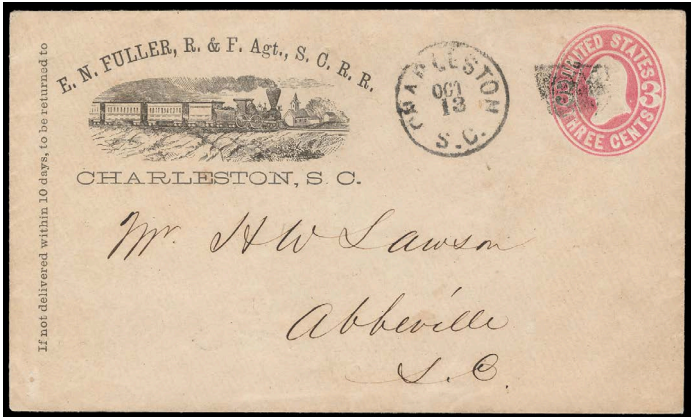 If not delivered within 10 days, to be returned to
E. N. FULLER, R. & F. Agt., S. C. R. R.
CHARLESTON, S. C.
CHARLESTON
OCT
13
S.C.
UNITED STATES
3
THREE CENTS
Mr. H W Lawson
Abbeville
S. C.